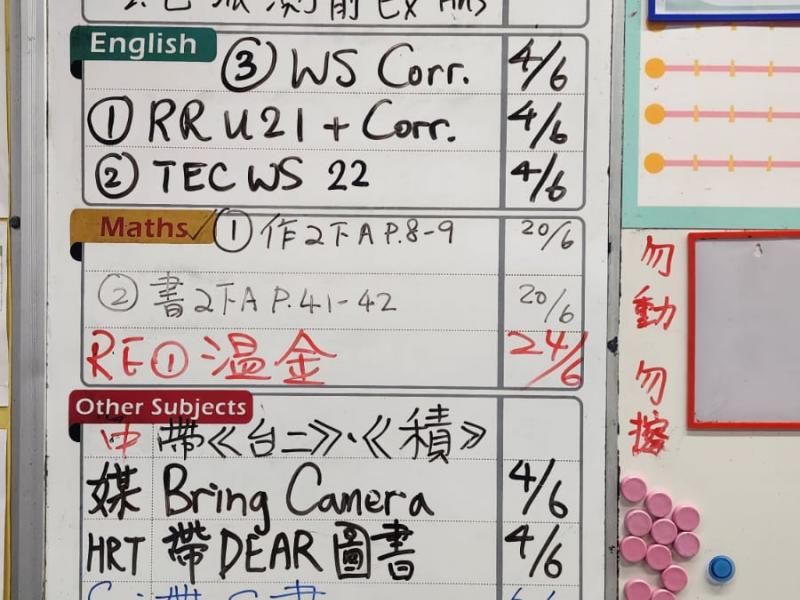 English
③ WS Corr. 4/6
① RR U21 + Corr. 4/6
② TEC WS 22 4/6
Maths ① 作2下A P.8-9 20/6
② 書2下A P.41-42 20/6
RE① 温金 24/6
Other Subjects
中 帶《台二》·《積》
媒 Bring Camera 4/6
HRT 帶DEAR圖書 4/6
勿動 勿擦